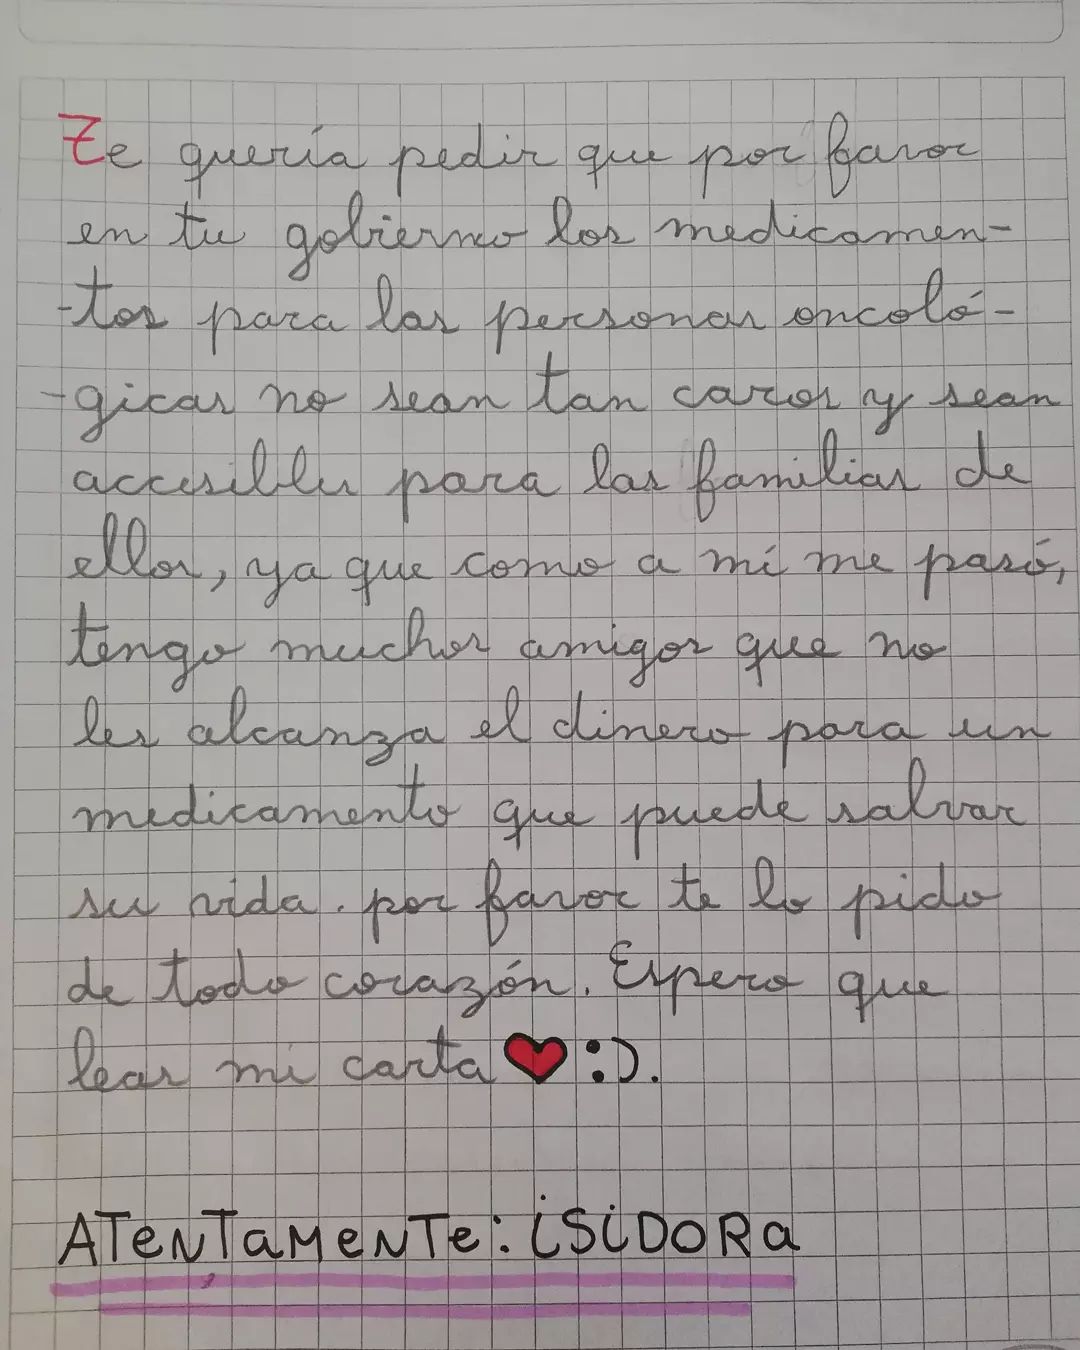 Te quería pedir que por favor
en tu gobierno los medicamen-
-tos para las personas oncoló-
-gicas no sean tan caros y sean
accesibles para las familias de
ellos, ya que como a mí me pasó,
tengo muchos amigos que no
les alcanza el dinero para un
medicamento que puede salvar
su vida. por favor te lo pido
de todo corazón. Espero que
leas mi carta ❤ :).
ATeNTaMeNTe: iSiDORa